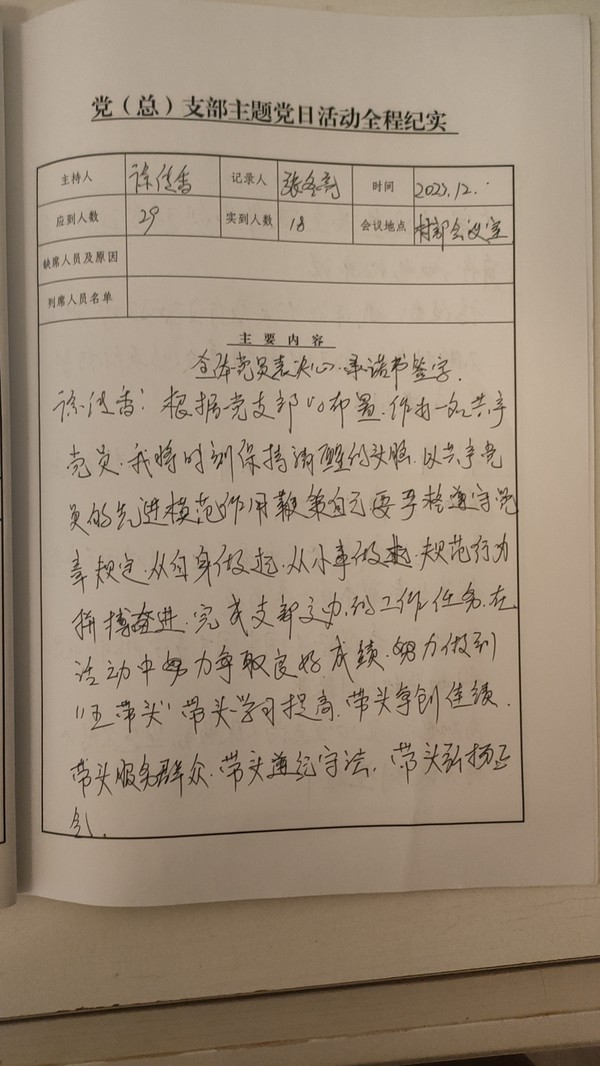 党（总）支部主题党日活动全程纪实
主持人 徐传香 记录人 张冬亮 时间 2023.12.
应到人数 29 实到人数 18 会议地点 村部会议室
缺席人员及原因
列席人员名单
主要内容
全体党员表决心.承诺书签字.
徐传香：根据党支部的布置.作为一名共产
党员.我将时刻保持清醒的头脑.以共产党
员的先进模范作用鞭策自己.要严格遵守党
章规定.从自身做起.从小事做起.规范行为
拼搏奋进.完成支部交办的工作任务.在
活动中努力争取良好成绩.努力做到
“五带头”带头学习提高.带头争创佳绩.
带头服务群众.带头遵纪守法.带头弘扬正
气.